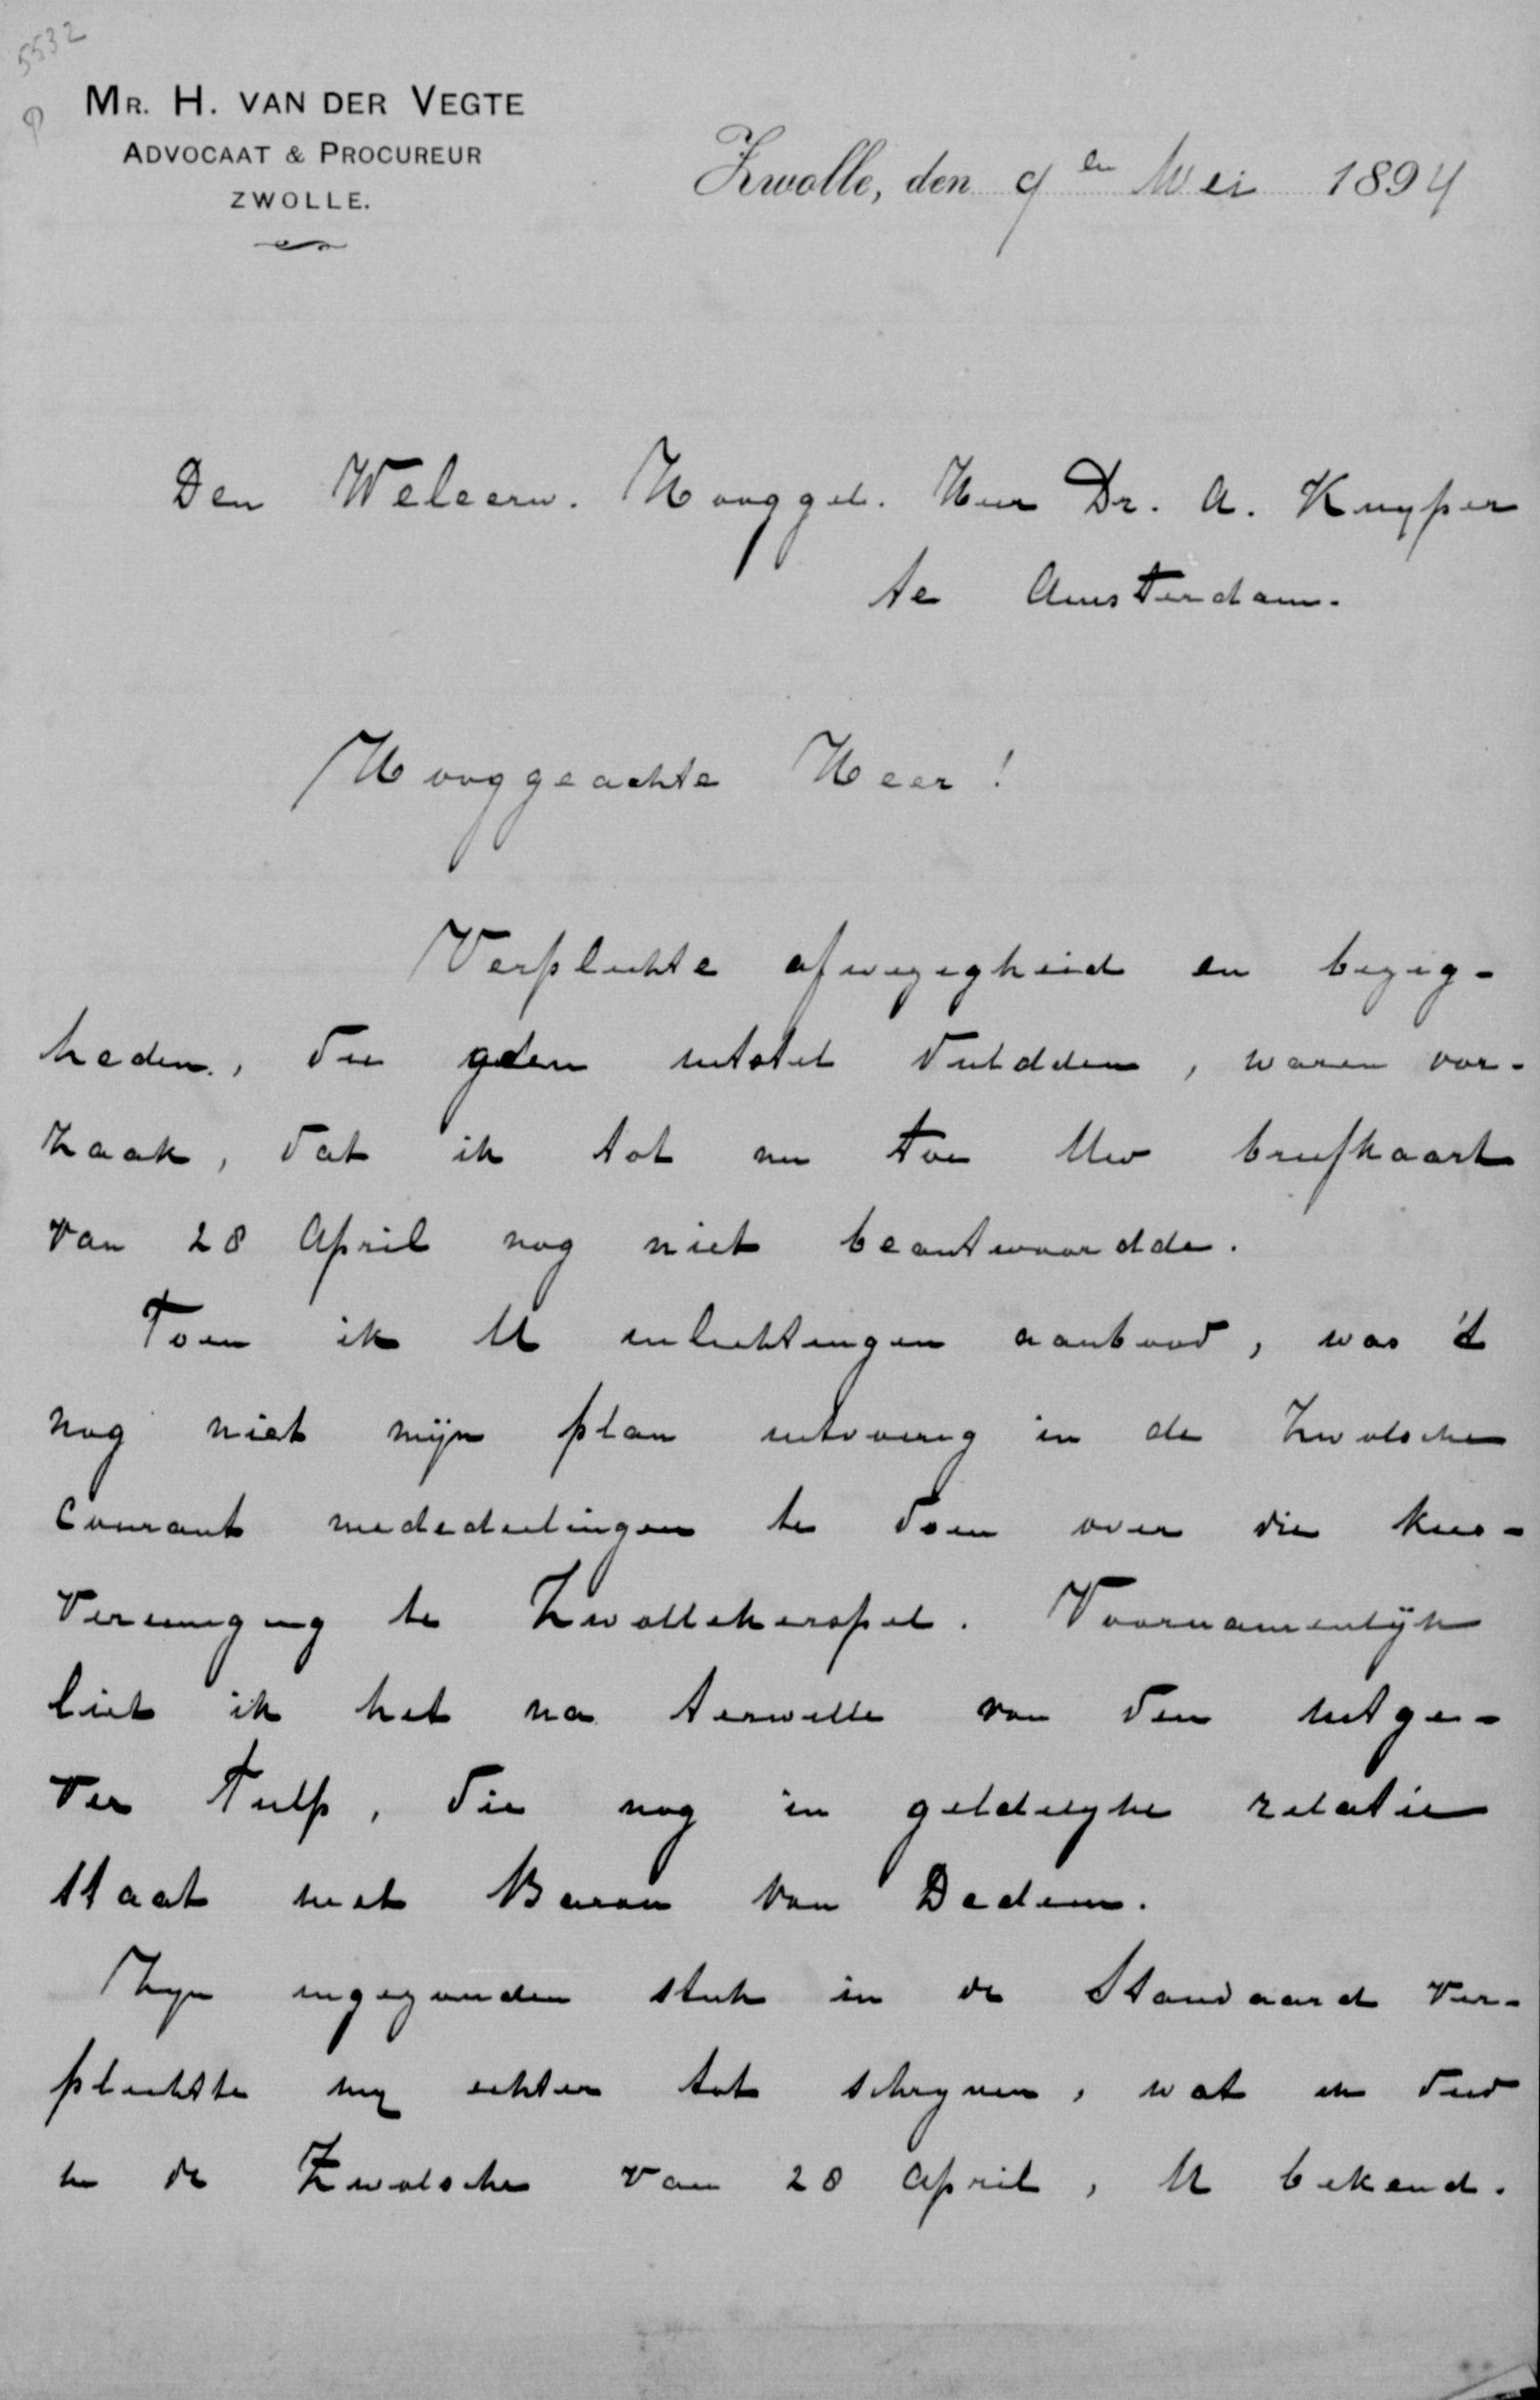 5532
Mr. H. van der Vegte
Advocaat & Procureur
Zwolle.
Zwolle, den 9en Mei 1894
Den Weleerw. Hooggel. Heer Dr. A. Kuyper
te Amsterdam.
Hooggeachte Heer!
Verplichte afwezigheid en bezig-
heden, die geen uitstel duldden, waren oor-
zaak, dat ik tot nu toe Uw briefkaart
van 28 April nog niet beantwoordde.
Toen ik U inlichtingen aanbood, was 't
nog niet mijn plan uitvoerig in de Zwolsche
Courant mededeelingen te doen over die kies-
vereeniging te Zwollekerspel. Voornamentlijk
liet ik het na terwille van den uitge-
ver Tulp, die nog in geldelyke relatie
staat met Baron van Dedem.
Zyn ingezonden stuk in de Standaard ver-
plichtte my echter tot schryven, wat ik deed
in de Zwolsche van 28 April, U bekend.